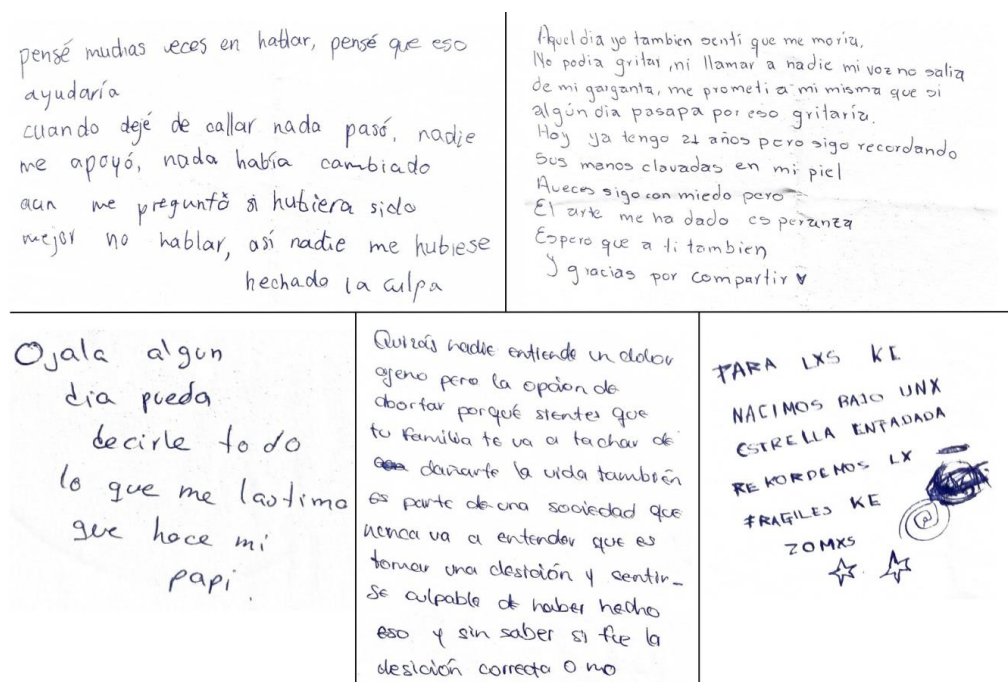 pensé muchas veces en hablar, pensé que eso
ayudaría
cuando dejé de callar nada pasó, nadie
me apoyó, nada había cambiado
aun me preguntó si hubiera sido
mejor no hablar, así nadie me hubiese
hechado la culpa
Aquel dia yo tambien senti que me moria,
No podia gritar, ni llamar a nadie mi voz no salia
de mi garganta, me prometi a mi misma que si
algún dia pasapa por eso gritaria.
Hoy ya tengo 21 años pero sigo recordando
Sus manos clavadas en mi piel
Aveces sigo con miedo pero
El arte me ha dado esperanza
Espero que a ti tambien
Y gracias por compartir
Ojala algun
dia pueda
decirle todo
lo que me lastima
que hace mi
papi.
Quizás nadie entiende un dolor
ajeno pero la opcion de
abortar porqué sientes que
tu familia te va a tachar de
dañarte la vida también
es parte de una sociedad que
nunca va a entender que es
tomar una desición y sentir-
se culpable de haber hecho
eso y sin saber si fue la
desición correcta o no
PARA LXS KE
NACIMOS BAJO UNX
ESTRELLA ENFADADA
REKORDEMOS LX
FRAGILES KE
ZOMXS